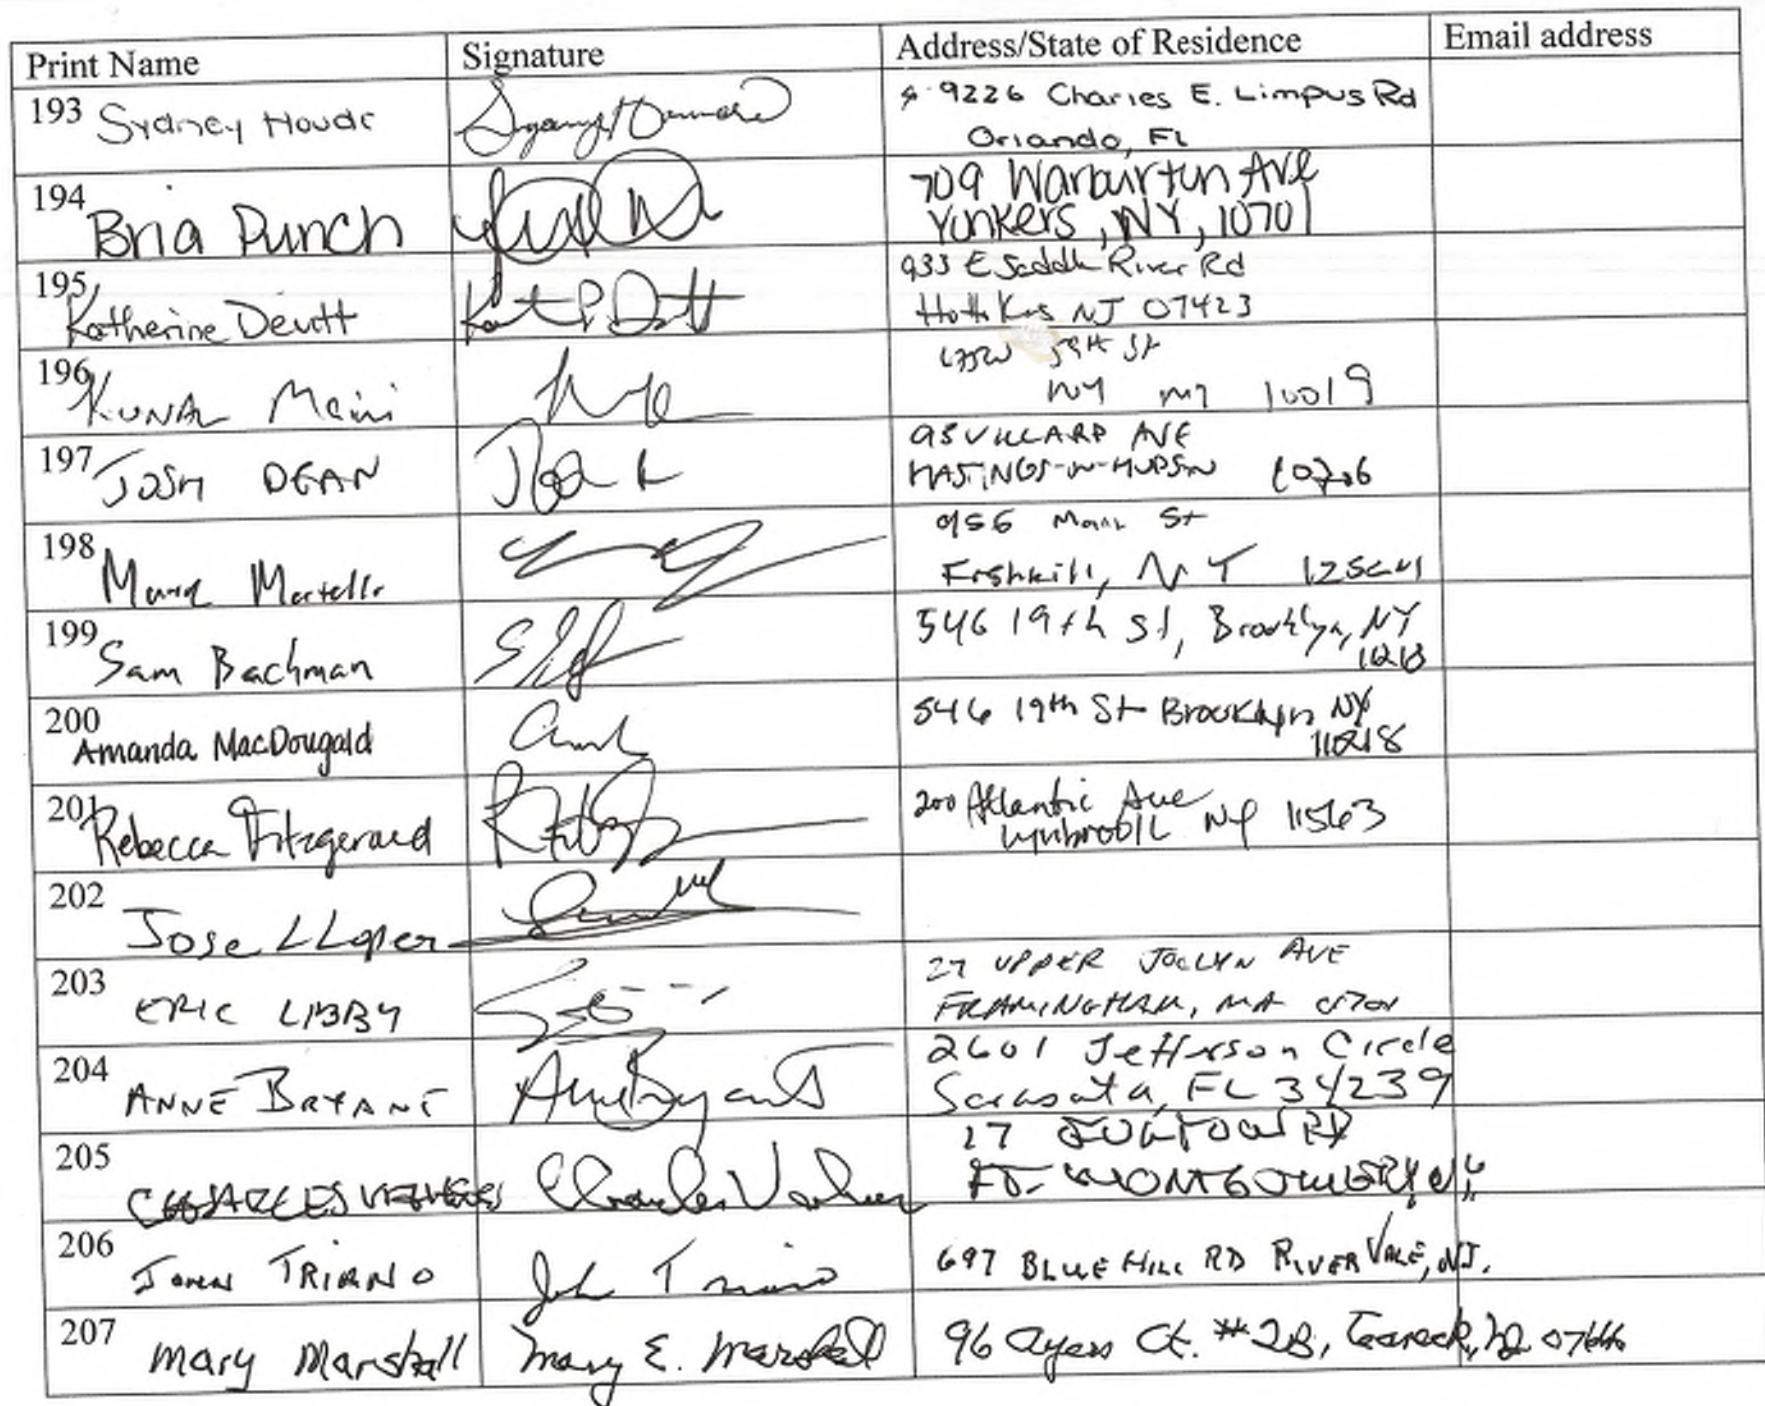 Print Name Signature Address/State of Residence Email address
193 Sydney Houde 9226 Charles E. Limpus Rd
Orlando, FL
194 Bria Punch 709 Warburton Ave
Yonkers, NY, 10701
195 Katherine Devitt 933 E Saddle River Rd
NJ 07423
196 Kunal Maini 59th St
NY NY 10019
197 JOSH DEAN 95 VILLARD AVE
HASTINGS-ON-HUDSON 10706
198 Martello 956 Main St
Fishkill, NY
199 Sam Bachman 546 19th St, Brooklyn, NY
200 Amanda MacDougald 546 19th St Brooklyn NY
11218
201 Rebecca Fitzgerald 200 Atlantic Ave
Lynbrook NY 11563
202 Jose L Lopez
203 ERIC LIBBY 27 UPPER JOCLYN AVE
FRAMINGHAM, MA 01701
204 ANNE BRYANT Anne Bryant 2601 Jefferson Circle
Sarasota, FL 34239
205 CHARLES Charles 17 RD
FT. MONTGOMERY N.Y.
206 JOHN TRIANO John Triano 697 BLUE HILL RD RIVER VALE, NJ.
207 Mary Marshall Mary E. Marshall 96 Ayers Ct. #2B, Teaneck, NJ 07666